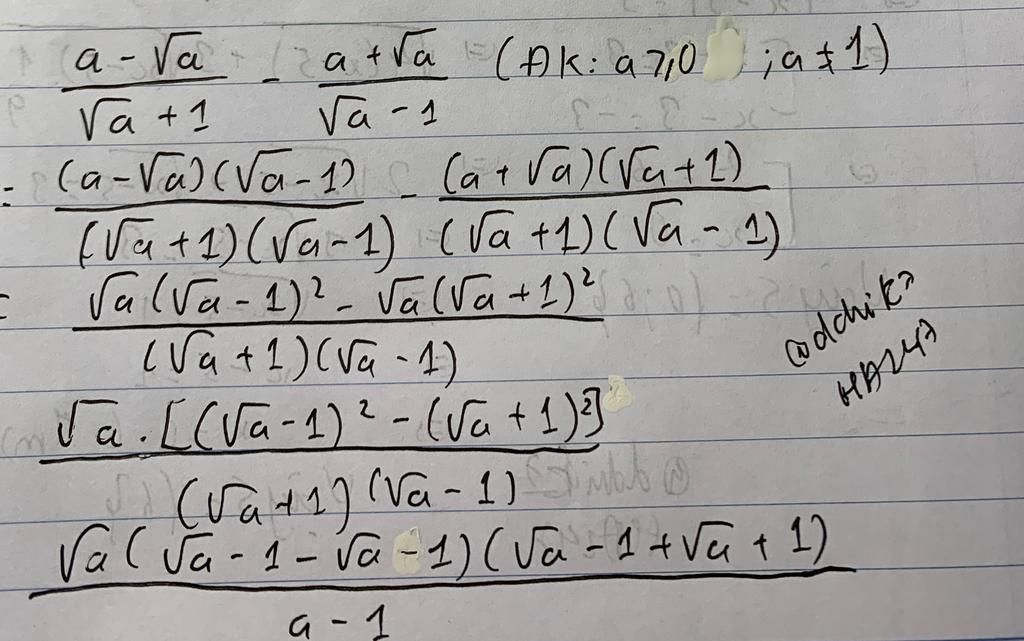 (a - √a)/(√a + 1) - (a + √a)/(√a - 1) (ĐK: a ≥ 0 ; a ≠ 1)
= (a - √a)(√a - 1)/(√a + 1)(√a - 1) - (a + √a)(√a + 1)/(√a + 1)(√a - 1)
= √a(√a - 1)² - √a(√a + 1)²/(√a + 1)(√a - 1)
√a . [(√a - 1)² - (√a + 1)²]/(√a + 1)(√a - 1)
√a(√a - 1 - √a - 1)(√a - 1 + √a + 1)/a - 1